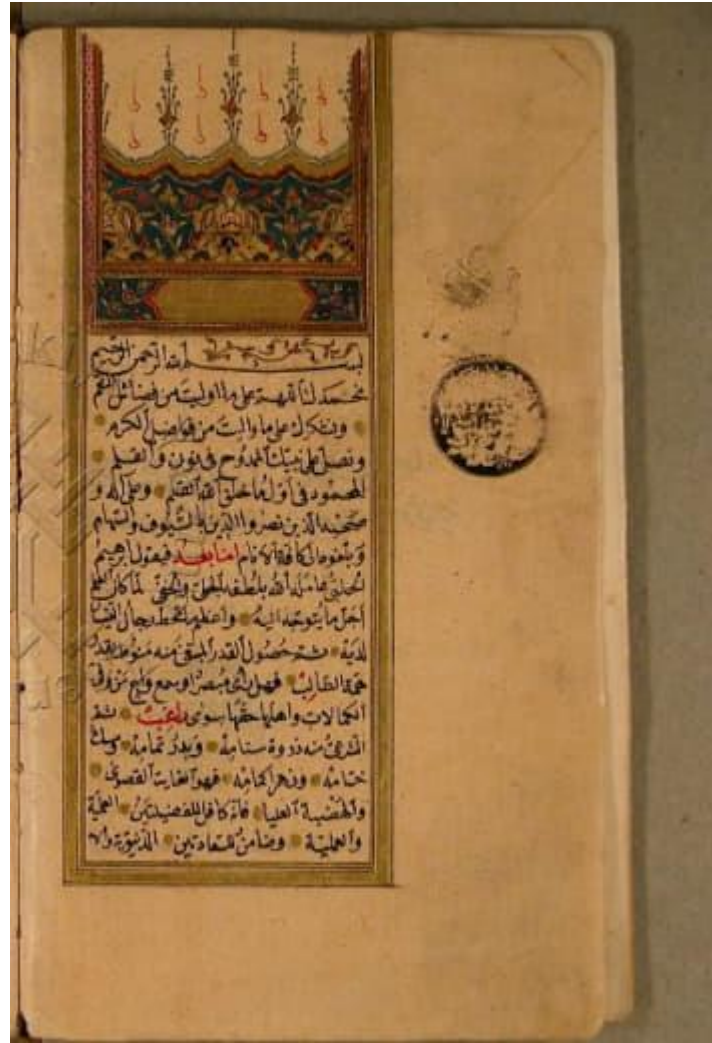 بسم الله الرحمن الرحيم
نحمدك اللهم على ما اوليت من فضائل النعم
ونشكرك على ما واليت من فواضل الكرم
ونصلى على نبيك الممدوح فى نون والقلم
المحمود فى اول ما خلق الله القلم وعلى اله و
صحبه الذين نصروا الدين بالسيوف والسهام
وبلغوه الى كافة الانام اما بعد فيقول ابرهيم
الحلبى عامله الله بلطفه الجلى والخفى لما كان العلم
اجل ما يتوجه اليه واعظم ما تحط رحال
لديه ثمت حصول القدر المبتغى منه منوط بقدر
همة الطالب فهل رأى مبصر او سمع واع من وفى
الكمالات واهلها حقها سوى راغب ثم
الشرعى منه ذروة سنامه وبدر تمامه ومسك
ختامه وزهر اكمامه فهو الغاية القصوى
والهضبة العليا فانه كافل للفضيلتين العلمية
والعملية وضامن للسعادتين الدنيوية والا